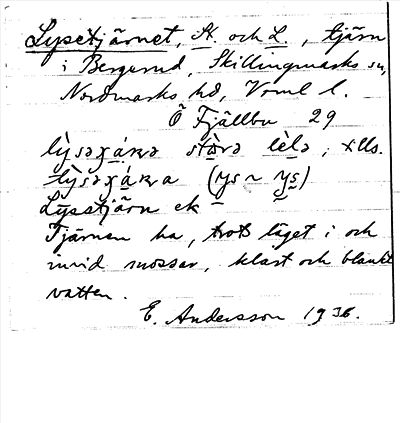 Lysetjärnet, St. och L., tjärn
i Bergerud, Skillingmarks sn,
Nordmarks hd, Vrml l.
Ö Fjällbu 29
lỳsəχárə stòrə lèlə; tills.
lỳsəχára (ys ~ ys)
Lysetjärn ek
Tjärnen ha, trots läget i och
invid mossar, klart och blankt
vatten.
E. Andersson 1936.